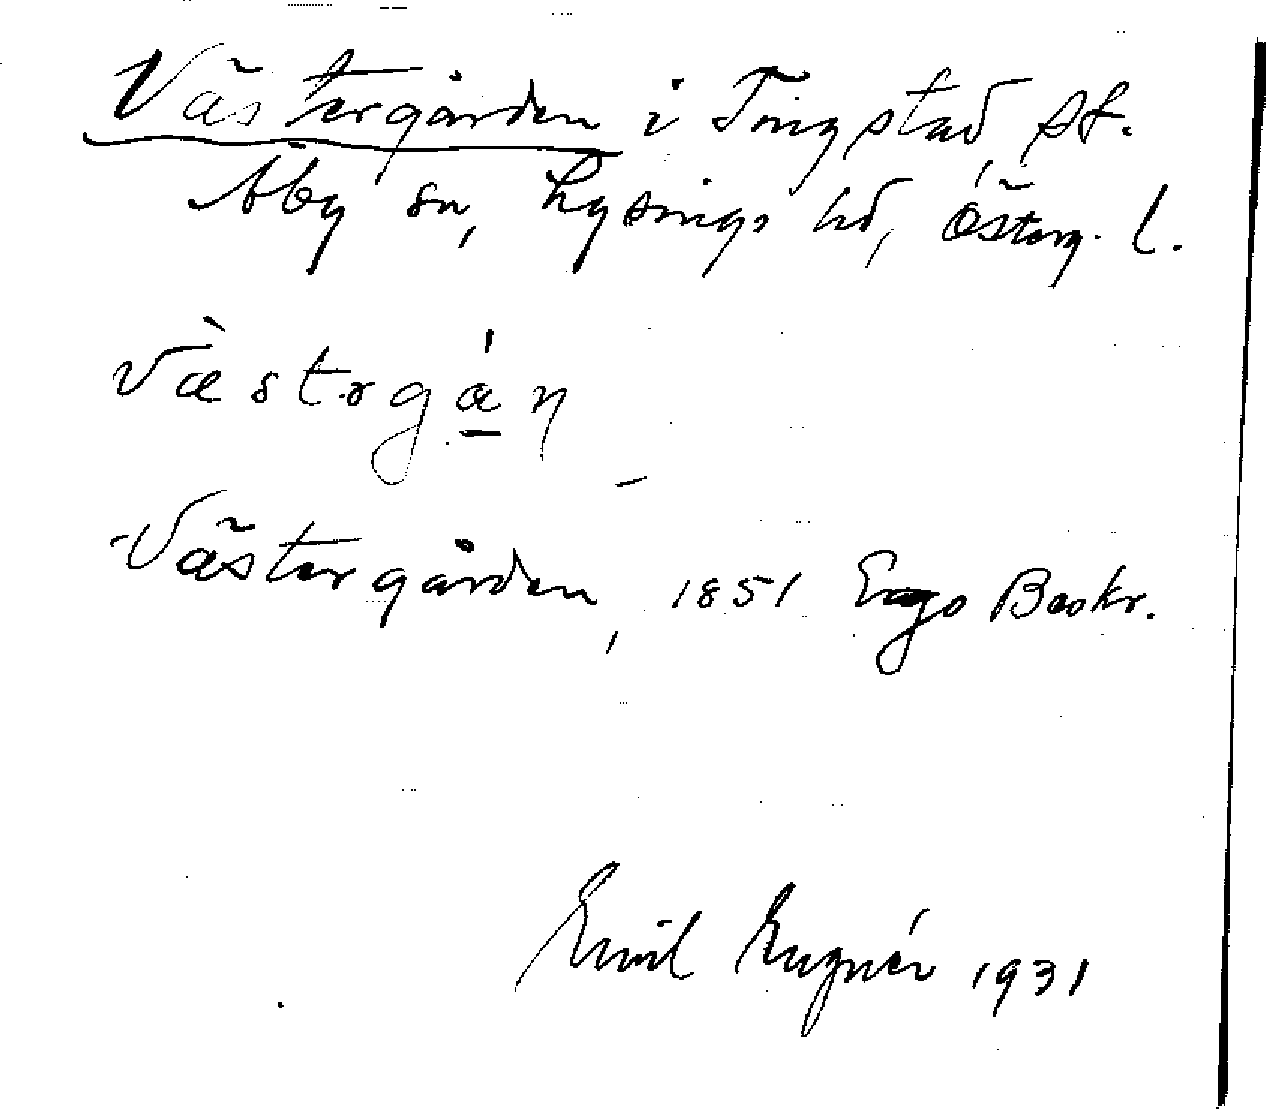 Västergården i Tingstad, st.
Åby sn, Lysings hd, Österg. l.
væ̀strgán
Västergården, 1851 Engo Beskr.
Emil Eugnér 1931